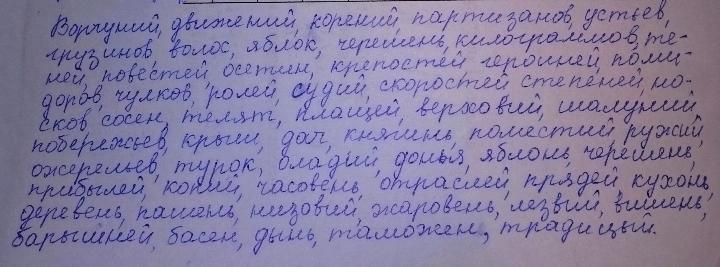 Ворчуний, движений, корений партизанов, устьев,
грузинов волос, яблок, черешень, килограммов, те-
ней, повестей осетин, крепостей героиней поми-
доров, чулков, ролей, судий, скоростей степеней, но-
сков, сосен, телят, плащей, верховий, шалуний
побережьев, крыш, дач, княжень, поместий ружий
ожерельев, турок, оладий, донья, яблонь, черешень,
прибылей, копий, часовень, отраслей, прядей кухонь,
деревень, пашень, низовий, жаровень, лезвий, вишень,
барышней, басен, дынь, таможен, традицый.